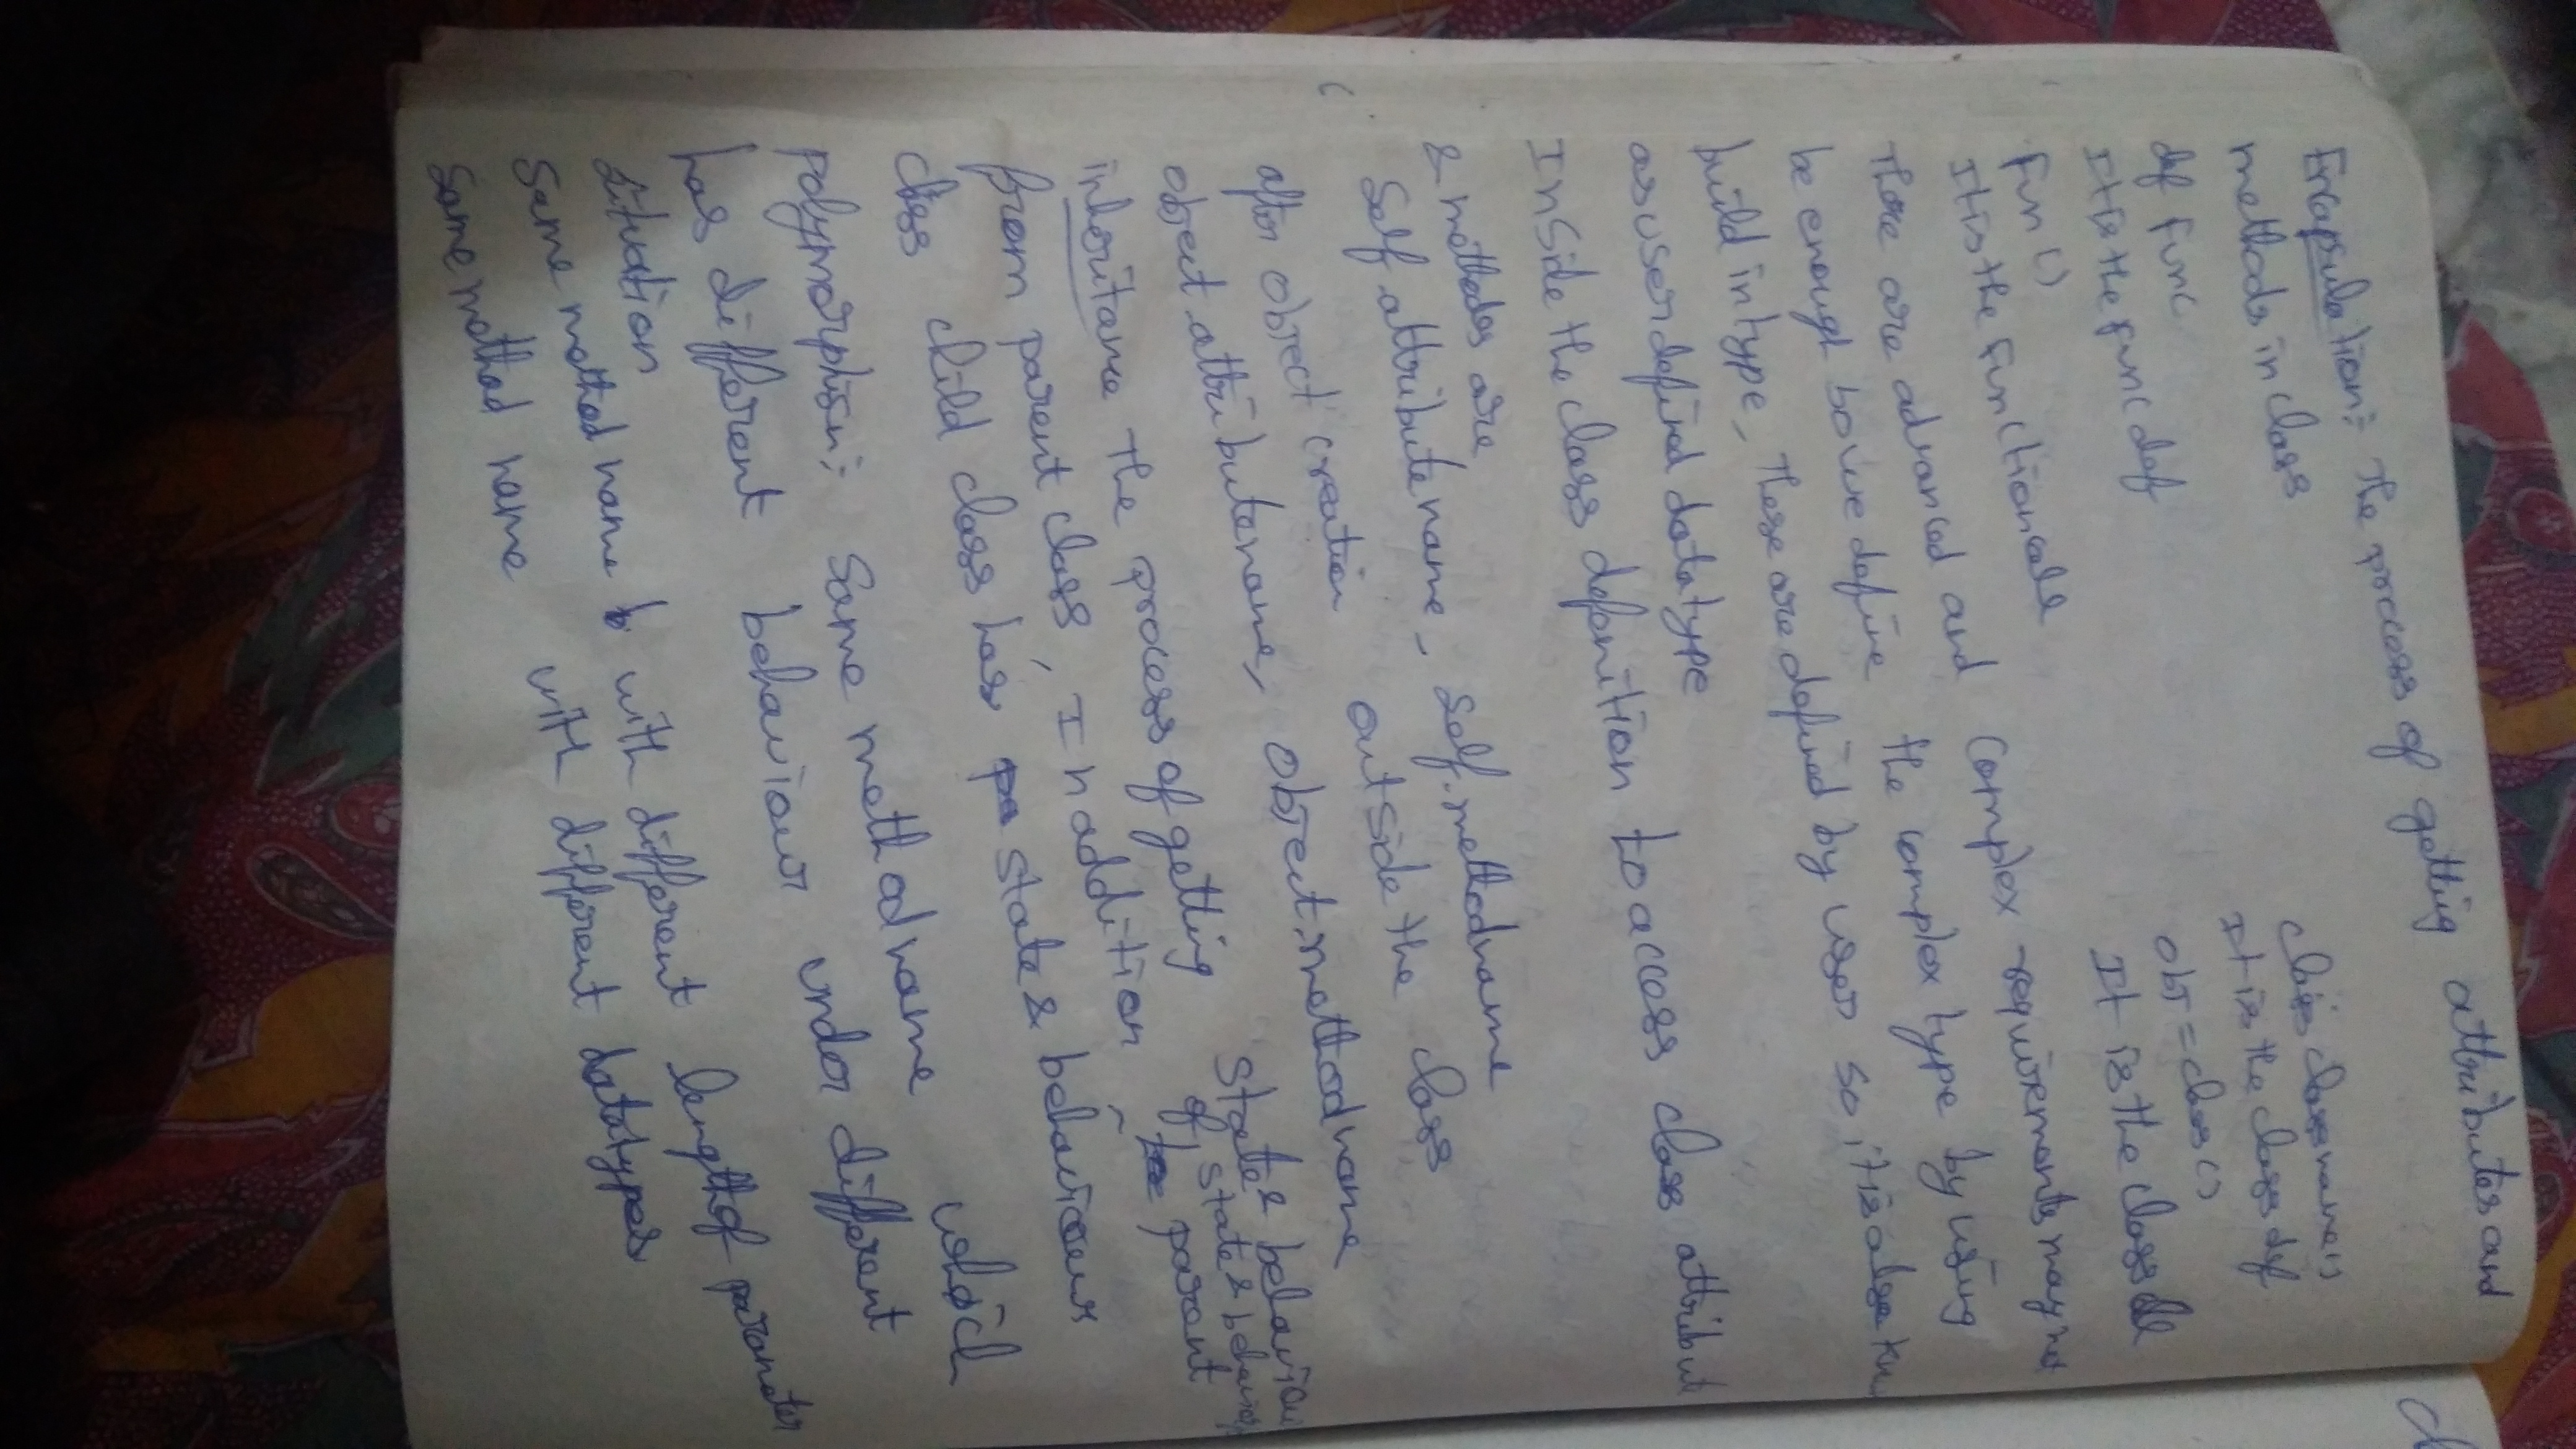 Encapsulation:- The process of getting attributes and
methods in class
def func
class classname()
It is the func def
It is the class def
Fun()
obj = class()
It is the function call
It is the class
There are advanced and complex requirements may not
be enough define the complex type by using
build in type, These are defined by user so, it is also
as user defined datatype
Inside the class definition to access class attribut
& methods are
self.attributename, self.methodname
after object creation outside the class
object.attributename, object.methodname
inheritance The process of getting state & behaviour
from parent class, In addition of state & behaviour
parent
class child class has state & behaviour
polymorphism:- Same method name which
has different behaviour under different
situation
Same method name with different length of parameter
same method name with different datatypes